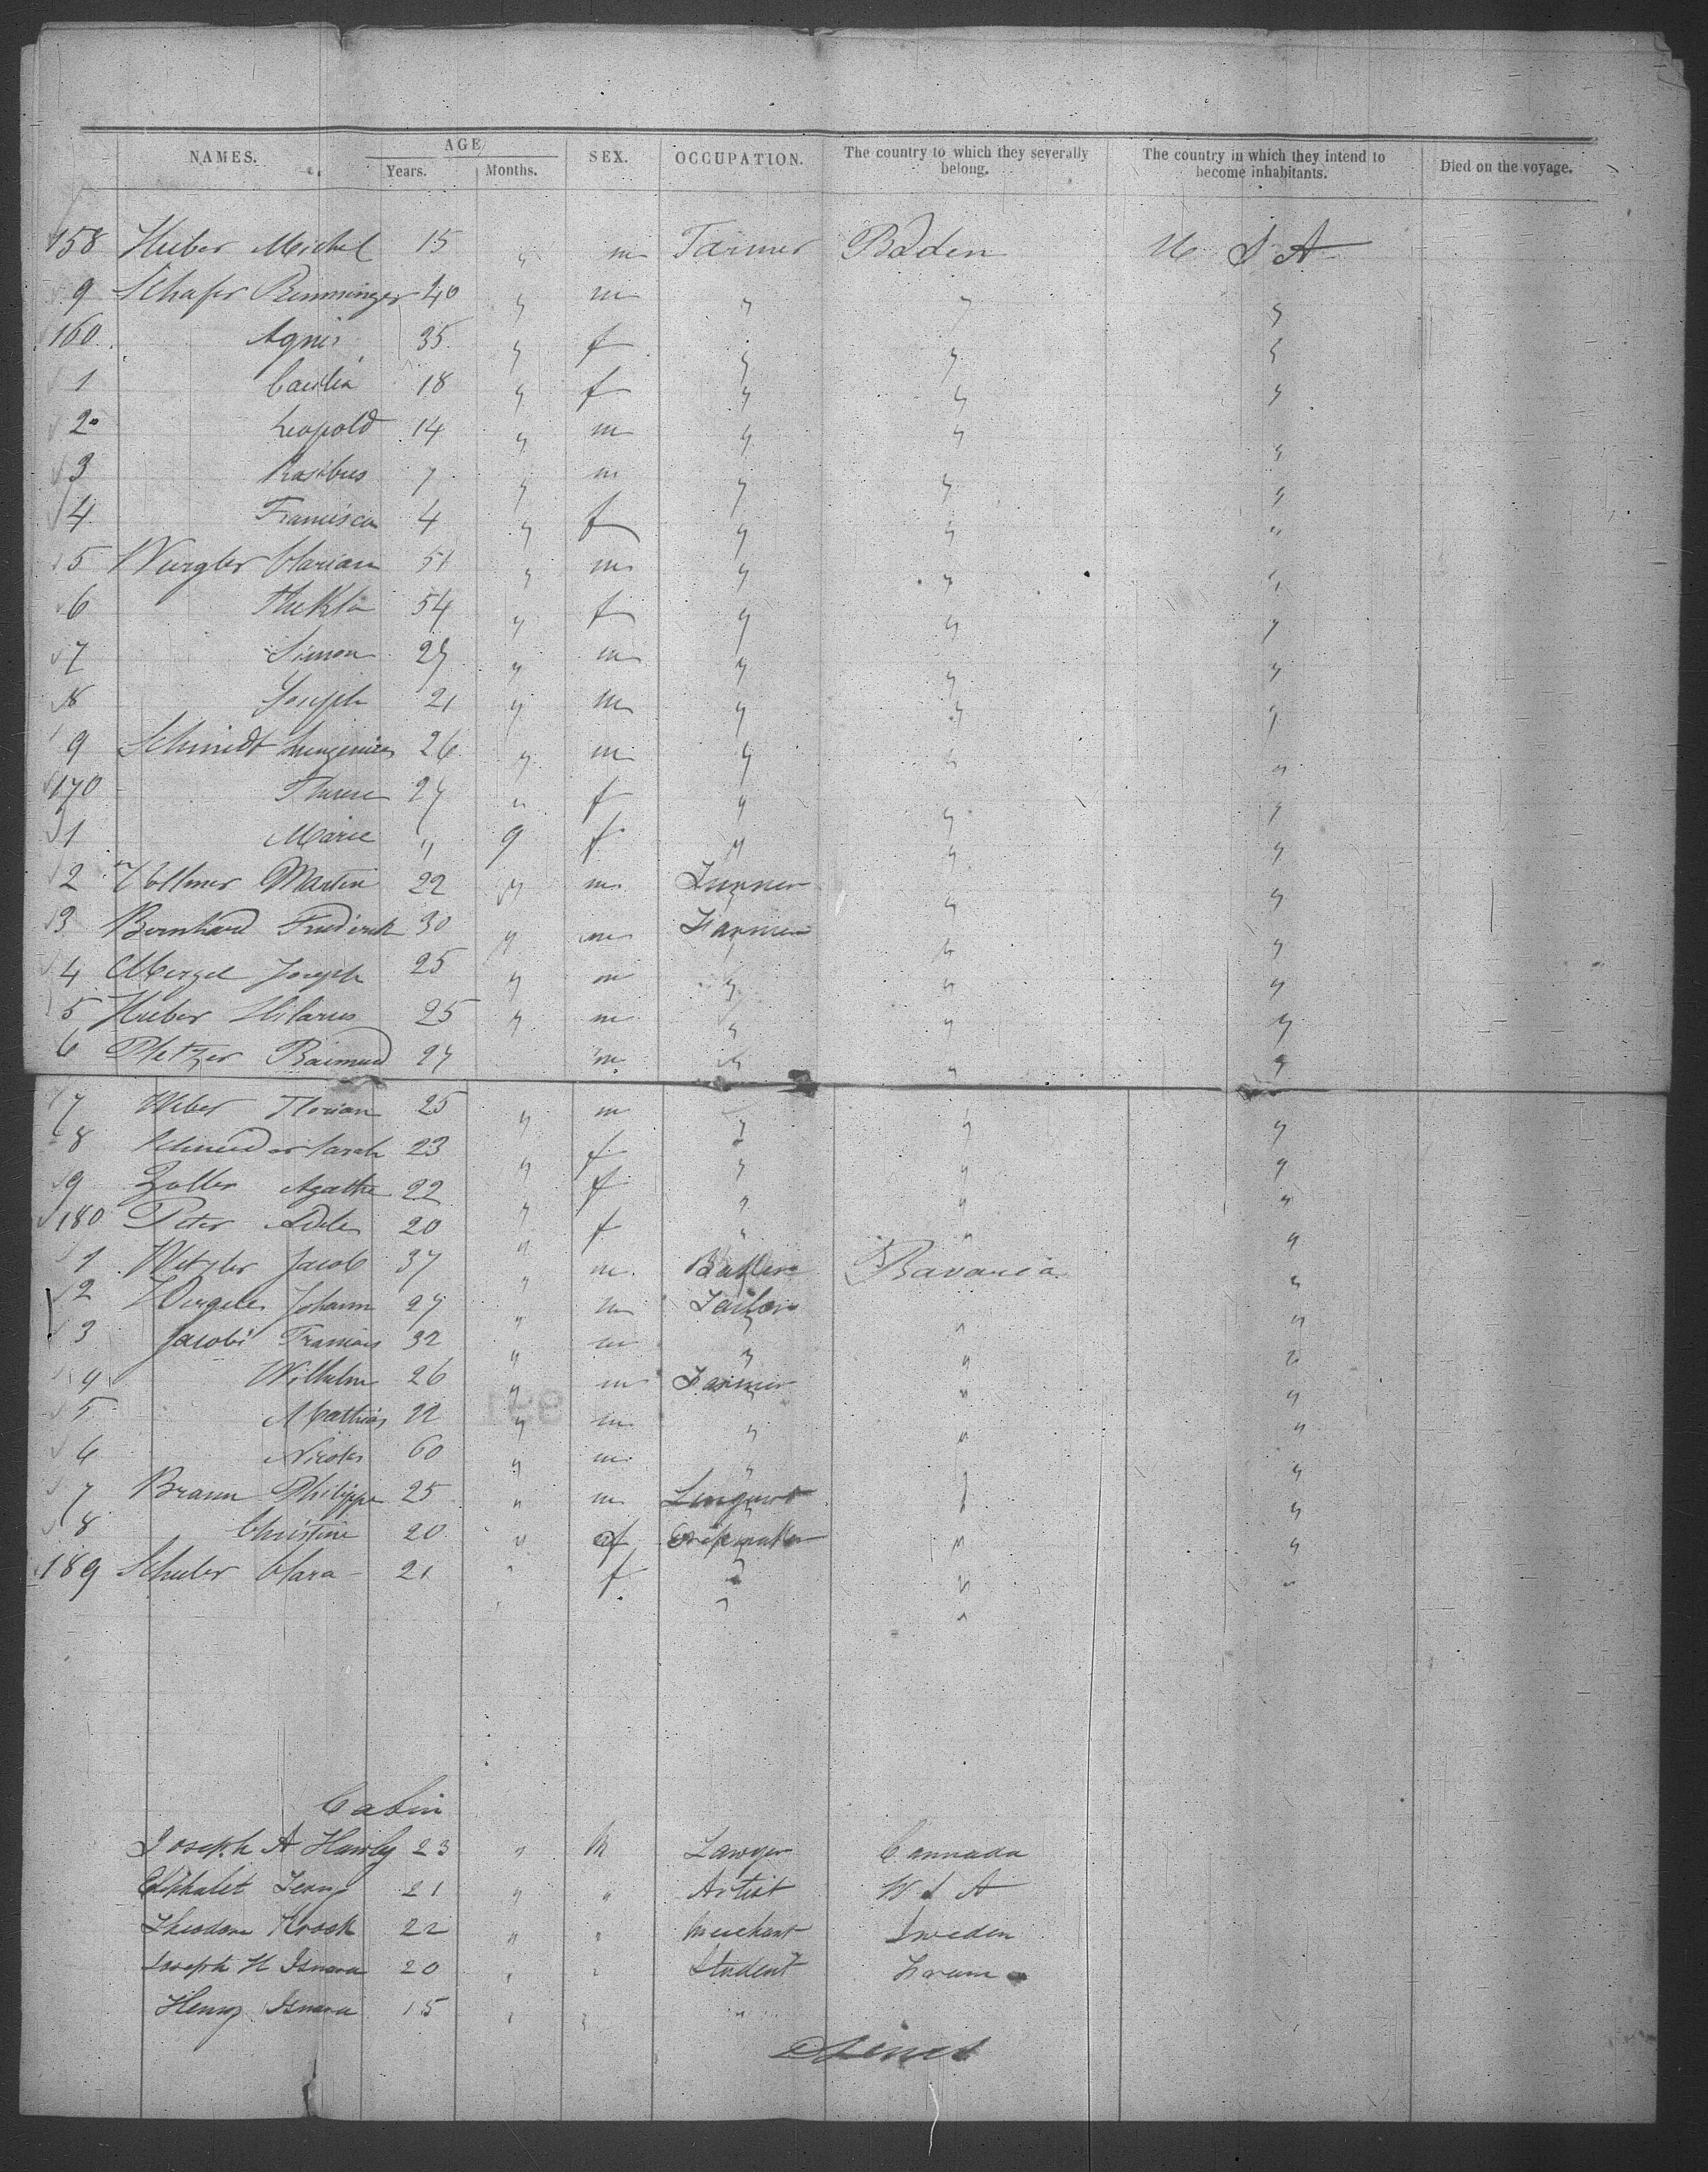 NAMES. AGE SEX. OCCUPATION. The country to which they severally belong. The country in which they intend to become inhabitants. Died on the voyage.
Years. Months.
158 Huber Michel 15 " m Farmer Baden U S A
9 Schafer 40 " m " " "
160 Agnes 35 " f " " "
1 18 " f " " "
2 Leopold 14 " m " " "
3 7 " m " " "
4 Francisca 4 " f " " "
5 Wurgler 51 " m " " "
6 Thekla 54 " f " " "
7 Simon 27 " m " " "
8 Joseph 21 " m " " "
9 Schmidt 26 " m " " "
170 Therese 27 " f " " "
1 Marie " 9 f " " "
2 Vollmer Martin 22 " m " "
3 Bernhard Frederick 30 " m Farmer " "
4 Merzel Joseph 25 " m " " "
5 Huber Hilarus 25 " m " " "
6 Pletzer Raimund 27 m " " "
7 Weber Florian 25 " m " " "
8 Schneider Sarah 23 " f " " "
9 Zoller Agathe 22 " f " " "
180 Peter Adele 20 " f " " "
1 Metzler Jacob 37 " m Bavaria "
2 Johann 27 " m Tailor " "
3 Jacobi Francois 32 " m " " "
4 Wilhelm 26 " m Farmer " "
5 Mathias 22 " m " " "
6 Nicolas 60 " m " " "
7 Braun Philippe 25 " m " "
8 Christine 20 " f " "
189 Schuler Clara 21 " f " " "
Cabin
Joseph A Hawley 23 " M Lawyer Cannada
Eliphalet Terry 21 " " Artist U S A
Theodore Krook 22 " " Merchant Sweden
Joseph H 20 " " Student
Henry 15 " " "